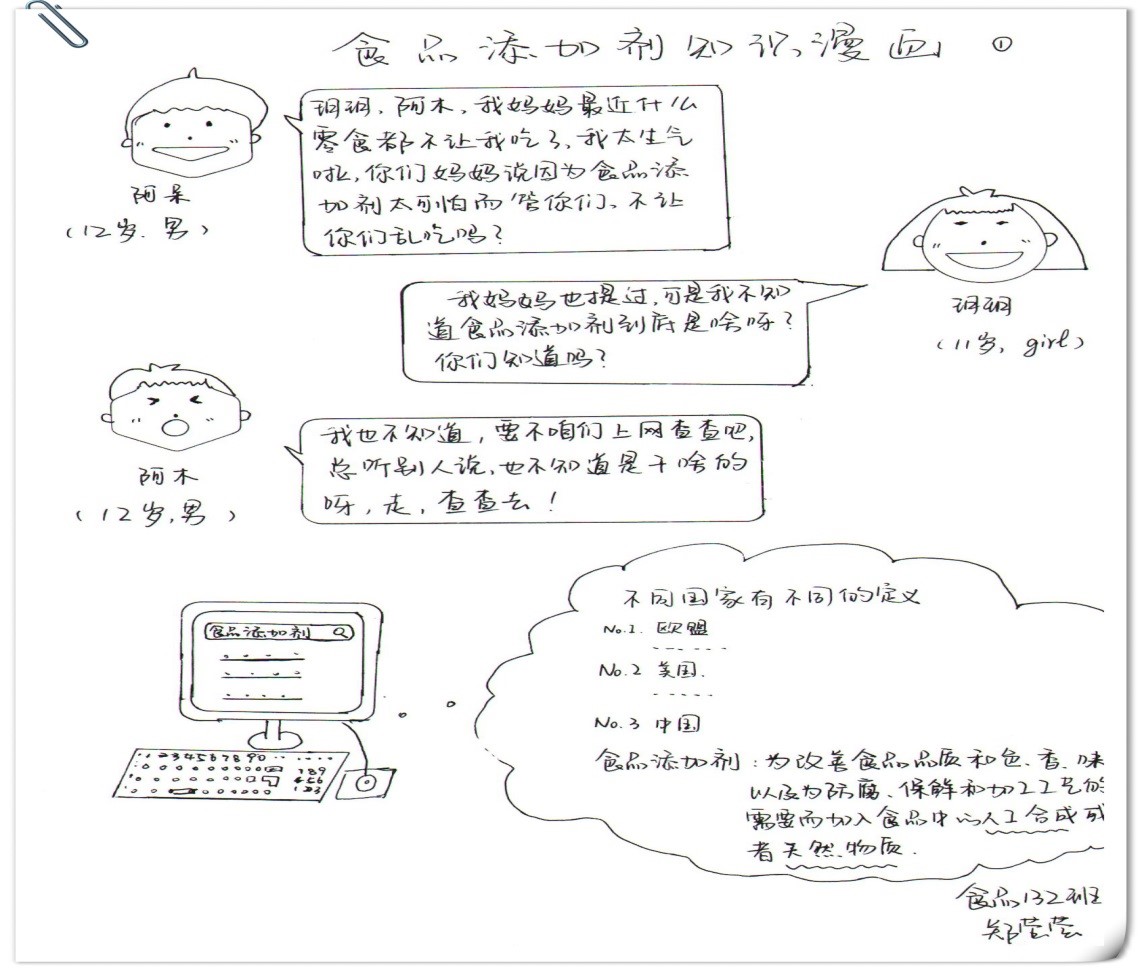 食品添加剂知识漫画 ①
玥玥,阿木,我妈妈最近什么
零食都不让我吃了,我太生气
啦,你们妈妈说因为食品添
加剂太可怕而管你们、不让
你们乱吃吗?
阿呆
(12岁.男)
我妈妈也提过,可是我不知
道食品添加剂到底是啥呀?
你们知道吗?
玥玥
(11岁,girl)
我也不知道,要不咱们上网查查吧,
总听别人说,也不知道是干啥的
呀,走,查查去!
阿木
(12岁,男)
食品添加剂
1234567890
789
456
123
不同国家有不同的定义
No.1. 欧盟
No.2 美国.
No.3 中国
食品添加剂:为改善食品品质和色、香、味
以及为防腐、保鲜和加工工艺的
需要而加入食品中的人工合成或
者天然物质.
食品132班
郑莹莹